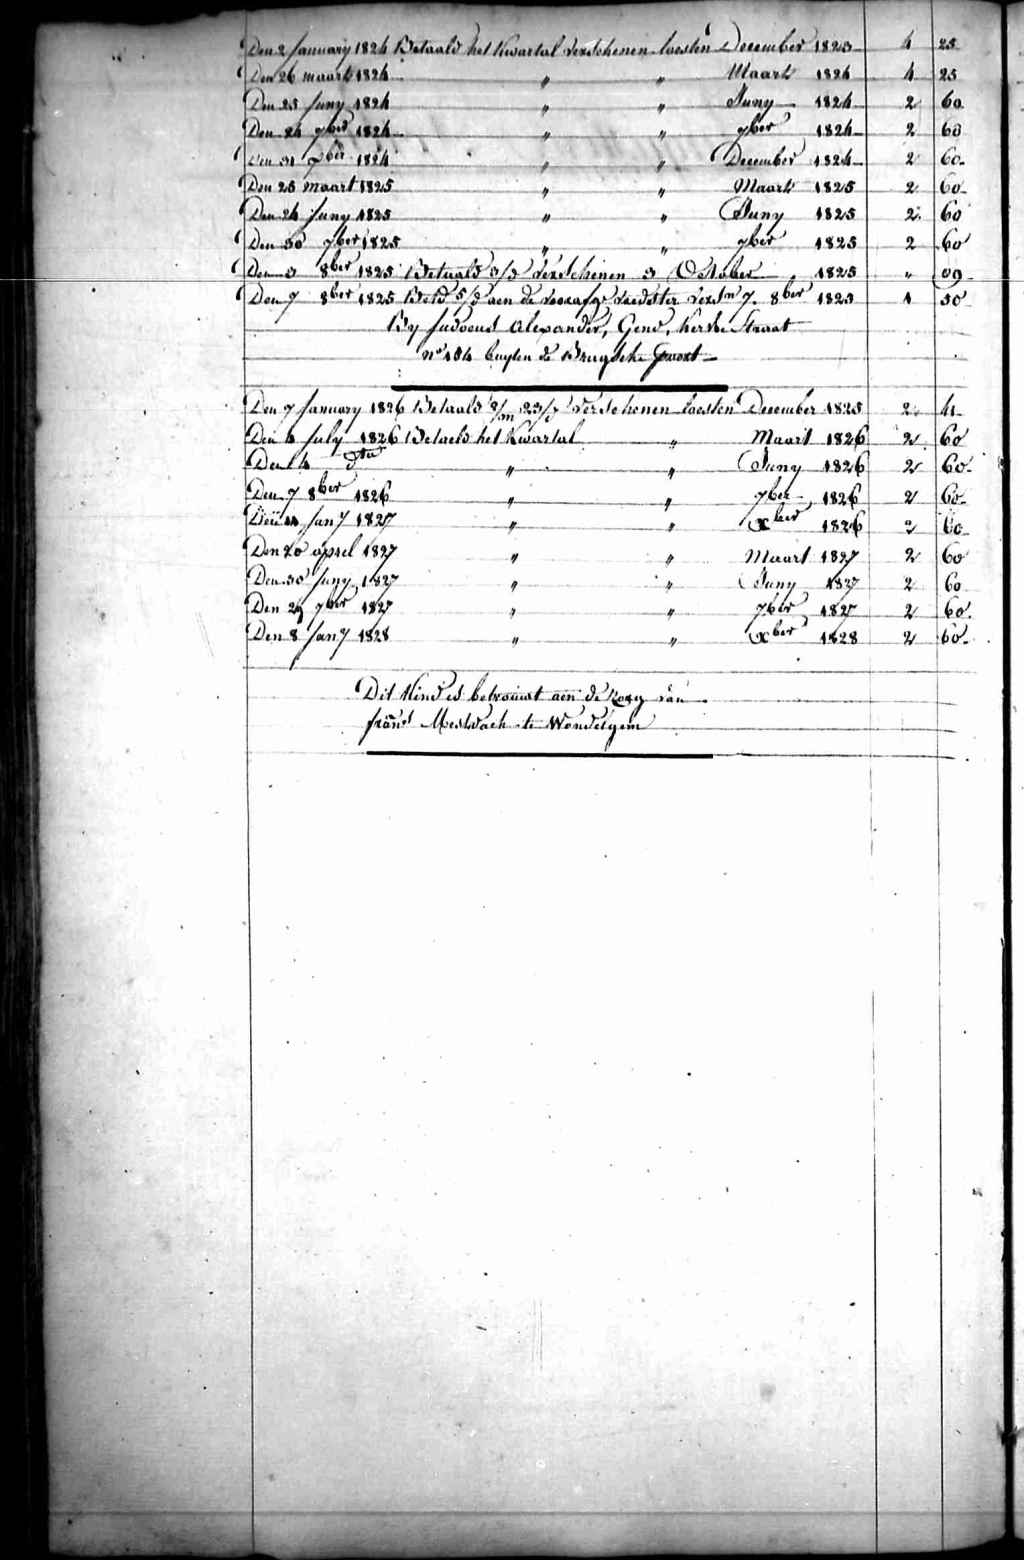 Den 2 January 1824 Betaald het Kwartal verschenen loesten December 1823 4 25
Den 26 maart 1824 " " Maart 1824 4 25
Den 25 Juny 1824 " " Juny 1824 2 60
Den 24 7ber 1824 " " 7ber 1824 2 60
Den 31 1824 " " December 1824 2 60
Den 25 maart 1825 " " Maart 1825 2 60
Den 24 Juny 1825 " " Juny 1825 2 60
Den 30 7ber 1825 " " 7ber 1825 2 60
Den 3 8ber 1825 Betaald 3/d verschenen 3 October 1825 " 09
Den 7 8ber 1825 Bet'd 5/d aen de 7. 8ber 1825 1 50
By Judocus Alexander, Gend, Kerke Straat
n° 184 buyten de Brugsche Poort
Den 7 January 1826 Betaald 2/m 23/d verschenen loesten December 1825 2 41
Den July 1826 Betaeld het Kwartal " Maart 1826 2 60
Den 4 dto " " Juny 1826 2 60
Den 7 8ber 1826 " " 7ber 1826 2 60
Den Jany 1827 " " xber 1826 2 60
Den 20 april 1827 " " Maart 1827 2 60
Den 30 Juny 1827 " " Juny 1827 2 60
Den 29 7ber 1827 " " 7ber 1827 2 60
Den 8 Jany 1828 " " xber 1828 2 60
Dit Kind is betrouwt aen de zorg van
frans te Wondelgem